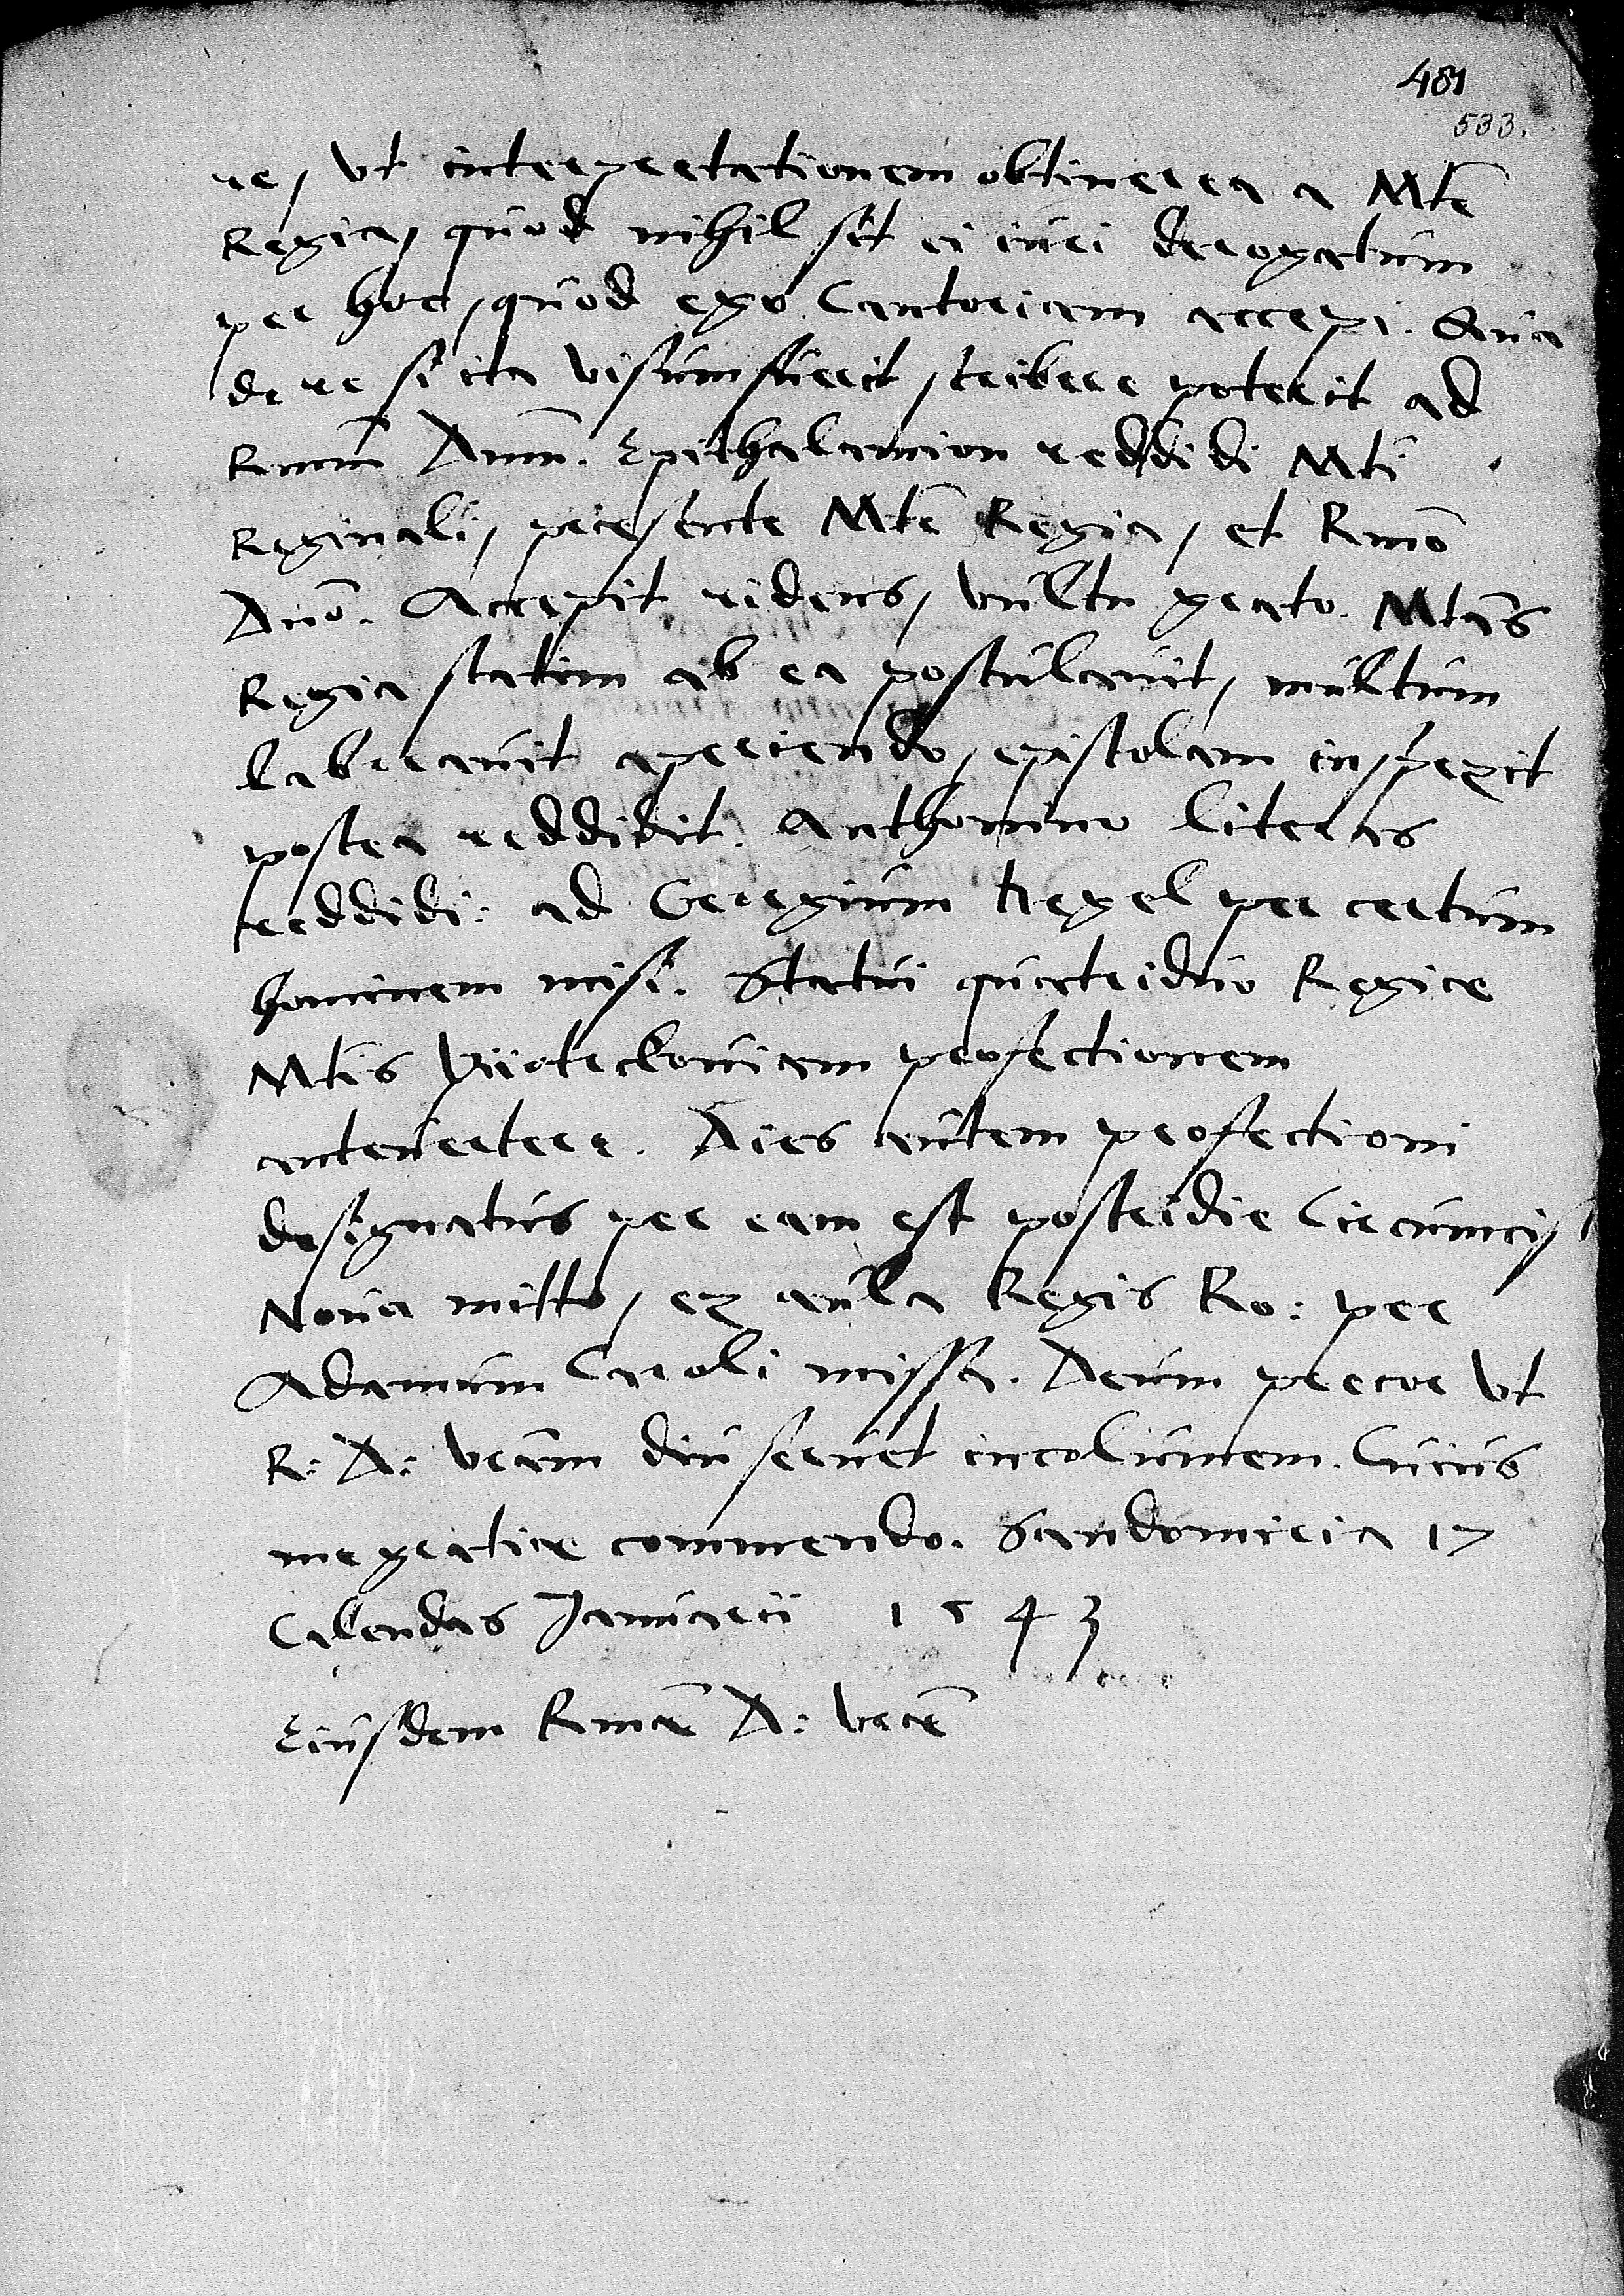 481
533.
re, ut interpretationem obtinerera a Mte
Regia, quod nihil sit ei iuri derogatum
per hoc, quod ego Cantoriam accepi. Qua
de re si ita visum fuerit, scribere poterit ad
Rmum Dnum. Epithalamion reddidi Mti
Reginali, praesente Mte Regia, et Rmo
Dno. Accepit ridens, vultu grato. Mtas
Regia statim ab ea postulavit, multum
laboravit aperiendo, epistolam inspexit
postea reddidit. Anthonino literas
reddidi: ad Georgium Hegel per certum
hominem misi. Statui quatriduo Regiae
Mtis Piotrcoviam profectionem
antevertere. Dies autem profectioni
designatus per eam est postridie Circumcis
Nova mitto, ex aula Regis Ro: per
Adamum Caroli missa. Deum precor ut
R: D: vram diu servet incolumem. Cuius
me gratiae commendo. Sandomiria 17
Calendas Januarii 1543
Eiusdem Rmae D: vrae